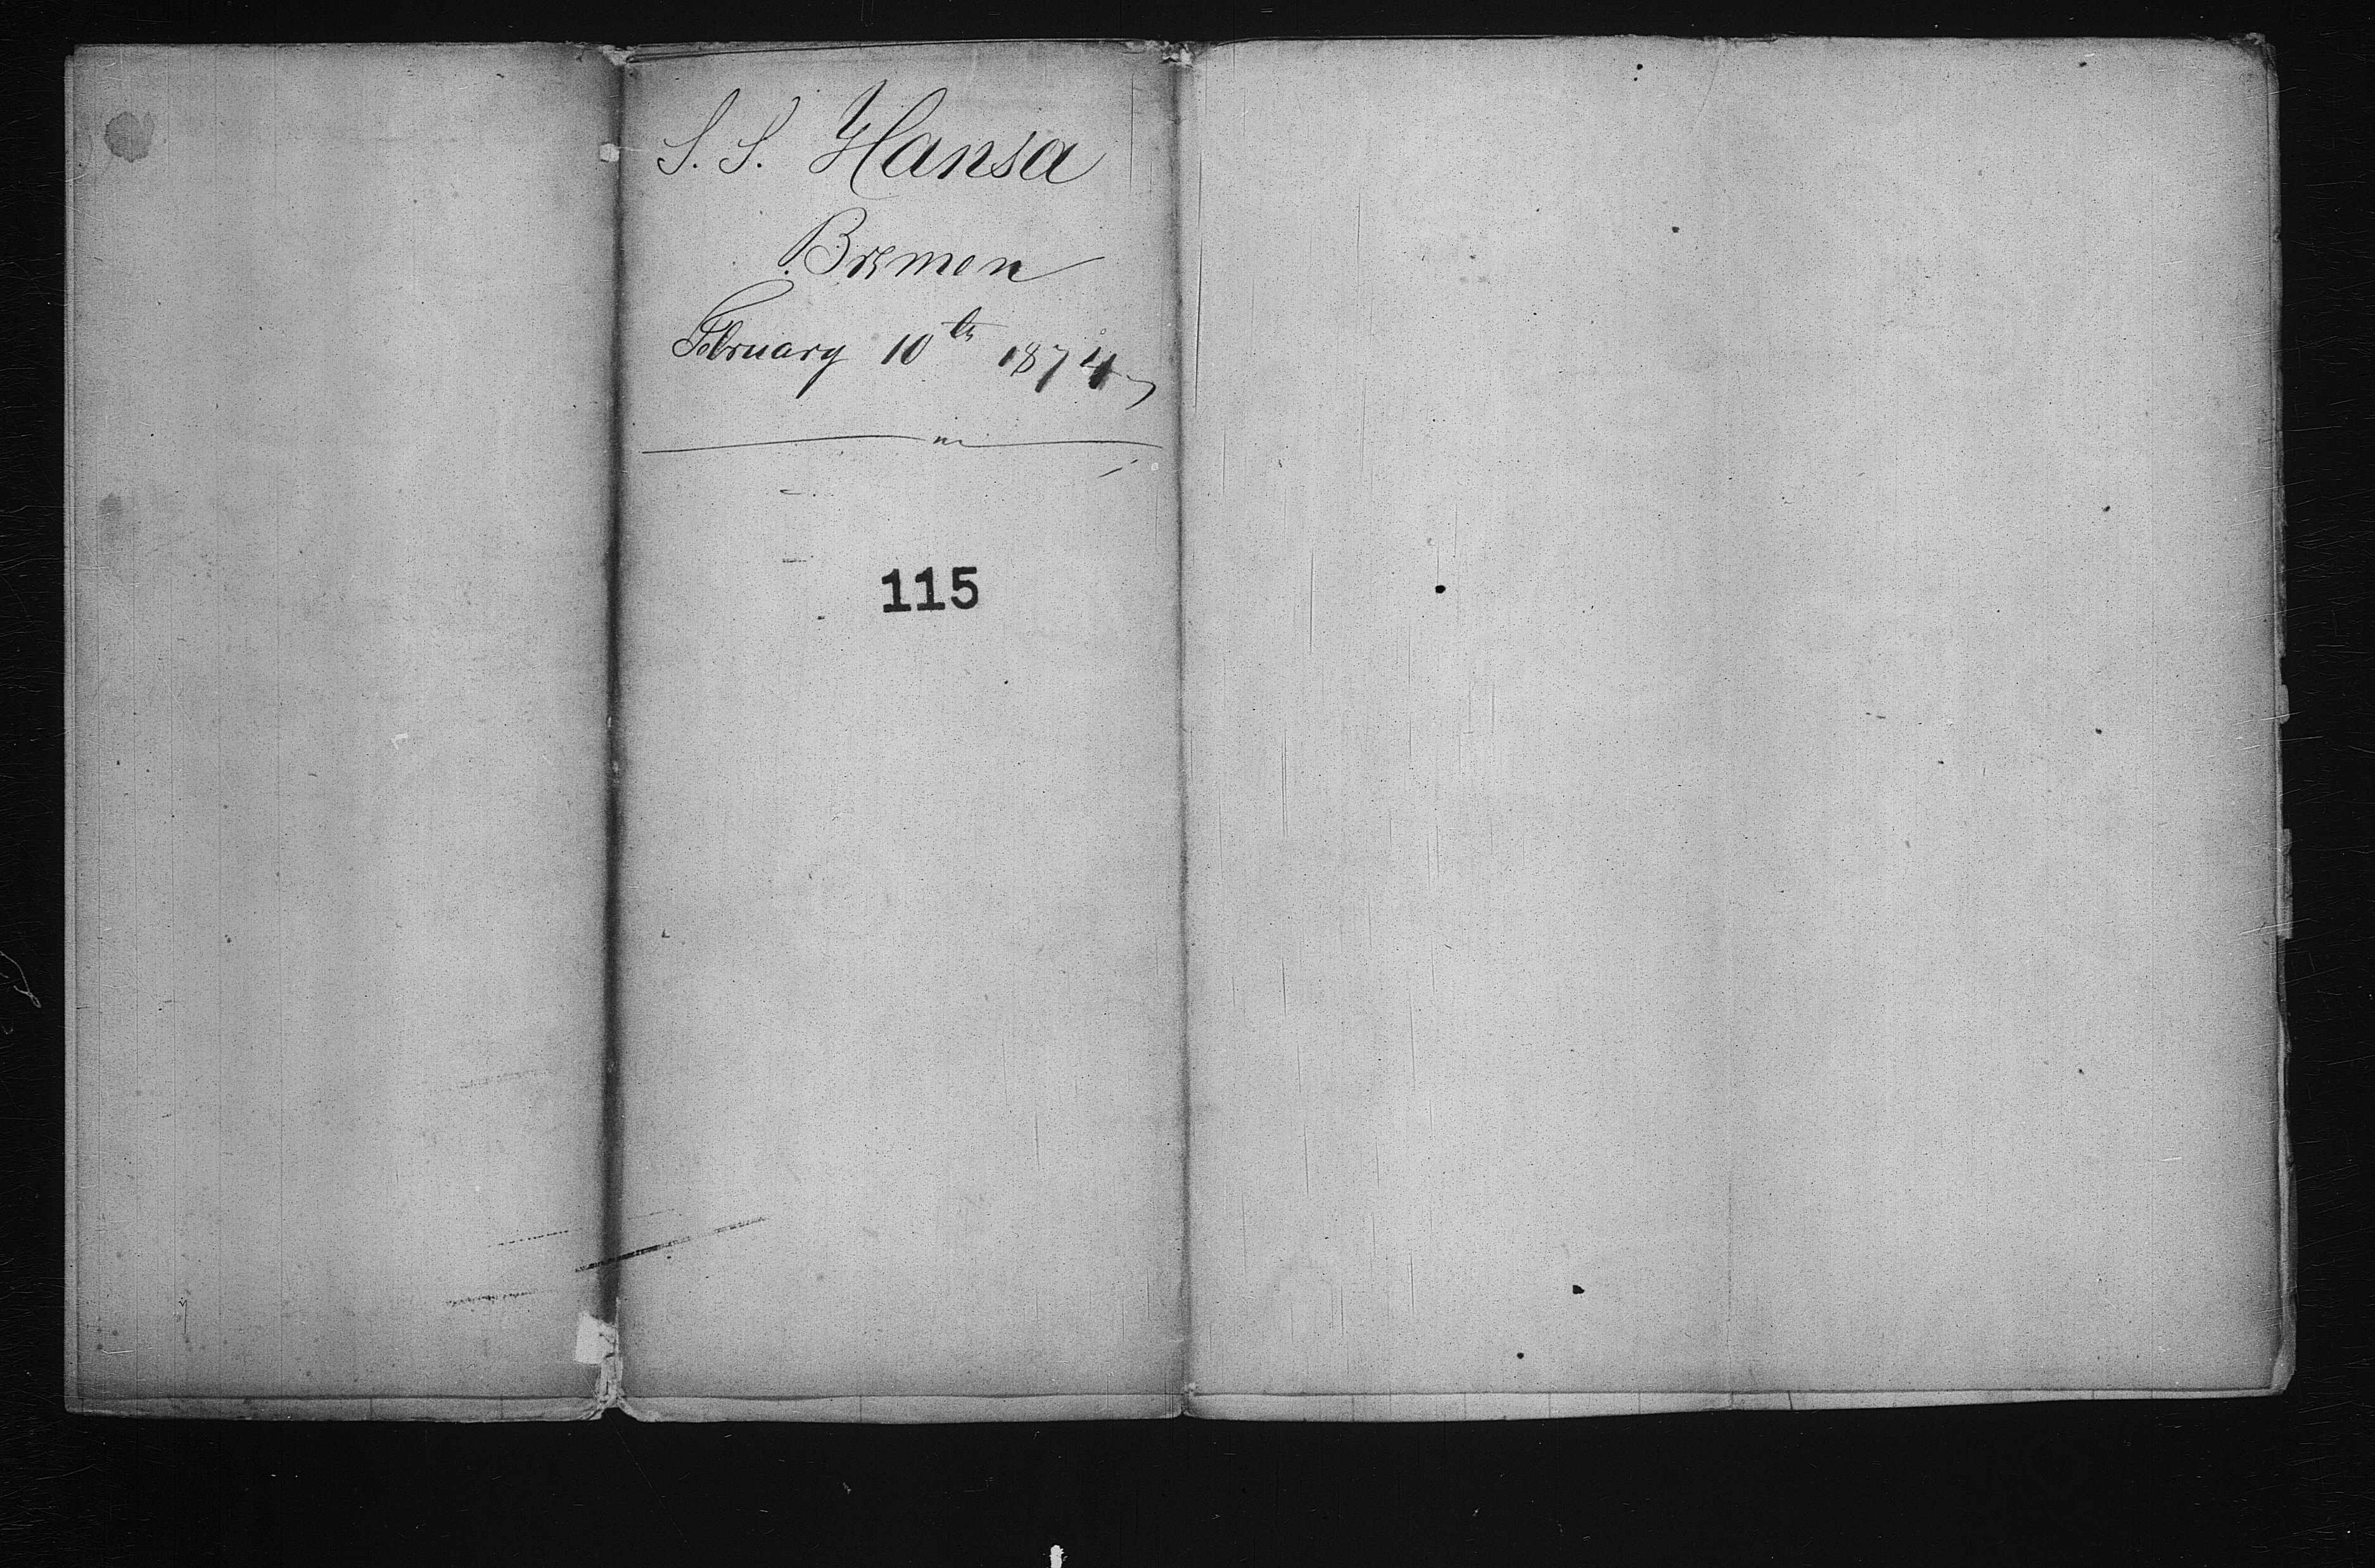 S. S. Hansa
Bremen
February 10th 1874
115